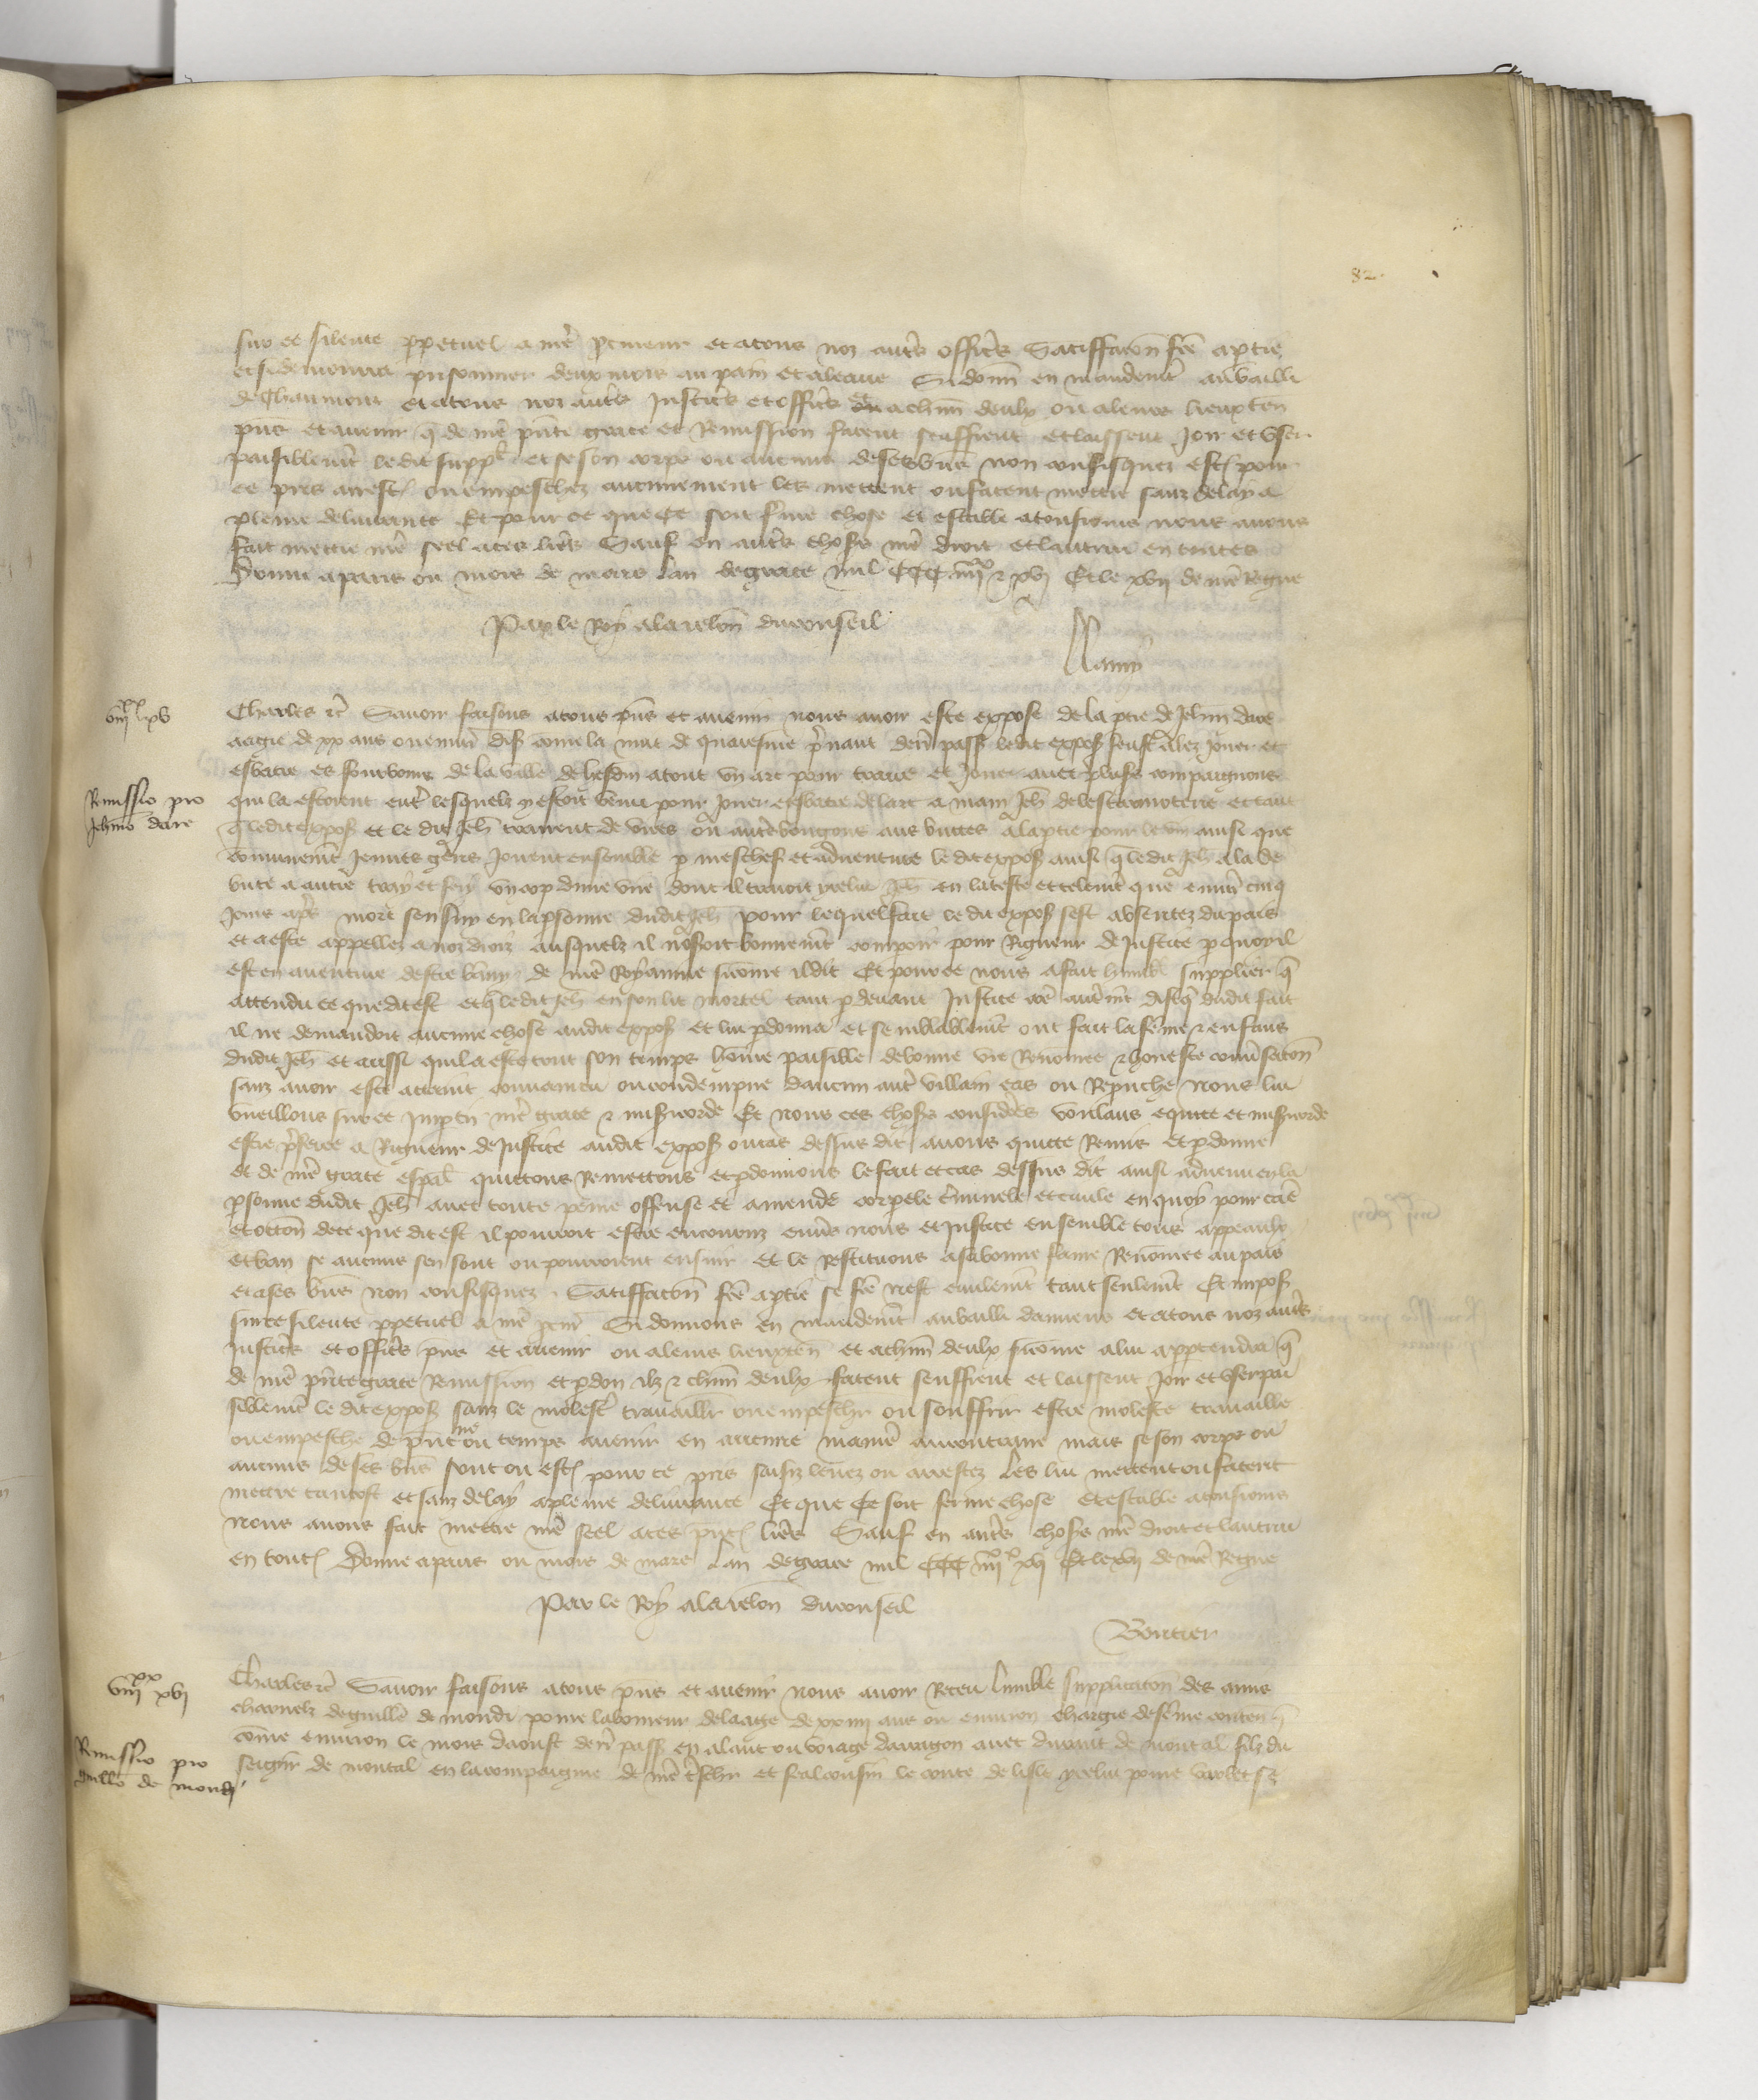 82.
sur ce silence ppetuel a nre pcureur et a tous noz autres officiers Satisfacon fce a ptie
et si demourra prisonnier deux mois au pain et a leaue Si donn en mandement au bailli
de Chaumont et a tous noz autres justiciers et officiers et a chun deulx ou a leurs lieuxten
pns et auenir q de nre pnte grace et Remission facent seuffrent et laissent joir et vser
paisiblemt ledit suppl et se son corps ou aucuns de ses biens non confisquez estoient pour
ce pris arrest ou empeschez aucunement les mettent ou facent mettre sanz delay a
pleine deliurance Et pour ce que ce soit ferme chose et estable a tousiours nous auons
fait mettre nre seel a ces lres Sauf en autres choses nre droit et lautrui en toutes
Donne a paris ou mois de mars lan de grace mil CCC iiijxx & xvj Et le xvij de nre Regne
Par le Roy a la relon du conseil
viijxx xv
Charles rc Sauoir faisons a tous pns et auenir nous auoir este expose de la ptie de Jehan dare
aagie de xx ans ou enuiron dis come la nuit de quaresme prenant dern pass ledit expos feust alez jouer et
esbatre es fourbours de la ville de hesdin a tout vn arc pour traire et jouer auec plus compaignons
Remissio pro
Jehanno dare
qui la estoient entre lesquelz y estoit venu pour jouer et esbatre de larc a main Jeh et tant
q ledit expos et le dit Jeh trairent de vires ou autre bougons aus buttes a la ptie pour le vin ainsi que
communement jeunes gens jouent ensemble p meschef et aduenture ledit expos ainsi q ledit Jeh ala de
bute a autre tray et fery vn cop dune vire dont il trairoit ycelui Jeh en la teste et telemt que enuiron cinq
jours apres mort sensuy en la psonne dudit Jeh pour lequel fait le dit expos sest absentez du pais
et a este appellez a noz drois ausquelz il noseroit bonnemt comparoir pour Rigueur de justice p quoy il
est en auenture destre banny de nre Royaume sicome il dit Et pour ce nous a fait humbl supplier q
attendu ce que dit est et q ledit Jeh en son lit mortel tant p deuant justice come autremt disoit q dudit fait
il ne demandoit aucune chose audit expos et lui pdonna et semblablemt ont fait la feme & enfans
dudit Jeh et aussi quil a este tout son temps home paisible de bonne vie Renomee & honeste conusacon
sanz auoir este attaint conuaincu ou condempne daucun autre villain cas ou Reprouche nous lui
vueillons sur ce impartir nre grace & misicorde Et nous ces choses considerees voulans equite et misicorde
estre pferee a Rigueur de justice audit expos ou cas dessus dit auons quitte Remis et pdonne
et de nre grace espal quittons Remettons et pdonnons le fait et cas dessus dit ainsi aduenu en la
psonne dudit Jeh auec toute peine offense et amende corporele criminele et ciuile en quoy pour cause
et occon de ce que dit est il pourroit estre encouruz enuers nous et justice ensemble tous appeaulx
et ban se aucuns sen sont ou pourroient ensuir et le Restituons a sa bonne fame Renomee au pais
et a ses biens non confisquez Satisfacon fce a ptie se fce nest ciuilemt tant seulemt Et impos
sur ce silence ppetuel a nre pcur Si donnons en mandemt au bailli damiens et a tous noz autres
justiciers et officiers pns et auenir ou a leurs lieuxten et a chun deulx sicome a lui apptendra q
de nre pnte grace Remission et pdon ilz & chun deulx facent seuffrent et laissent joir et vser pai
siblemt le dit expos sanz le molester trauaillier ou empescher ou souffrir estre moleste trauaillie
ou empesche de pnt ne ou temps auenir en aucune maniere au contraire mais se son corps ou
aucuns de ses biens sont ou estoient pour ce pris saisiz leuez ou arrestez les lui mettent ou facent
mettre tantost et sanz delay a pleine deliurance Et que ce soit ferme chose et estable a tousiours
nous auons fait mettre nre seel a ces pntes lres Sauf en autres choses nre droit et lautrui
en toutes Donne a paris ou mois de mars lan de grace mil CCC iiijxx xvj Et le xvij de nre Regne
Par le Roy a la relon du conseil
Bontier
viijxx xvj
Charles rc Sauoir faisons a tous pns et auenir nous auoir receu lumble supplicacon des amis
charnelz de guille de mondi poure laboureur de laage de xxiiij ans ou enuiron chargie de feme conten q
Remissio pro
guillo de mondi
come enuiron le mois daoust dern pass en alant ou voiage darragon auec durant de montal filz du
seigneur de montal en la compaignie de nre tres chier et feal cousin le conte de lisle ycelui poure varlet se